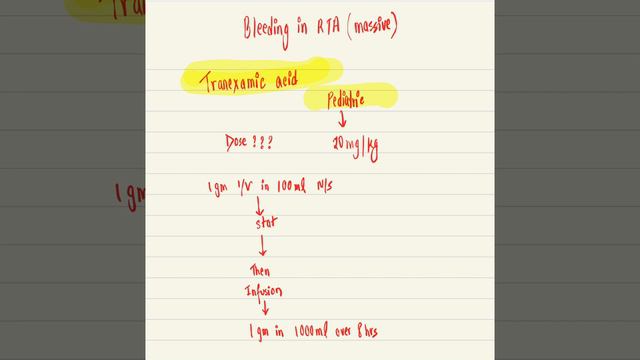 Bleeding in RTA (massive)
Tranexamic acid
Pediatric
Dose ??? 20 mg/kg
1 gm I/V in 100 ml N/S
stat
Then
Infusion
1 gm in 1000 ml over 8 hrs